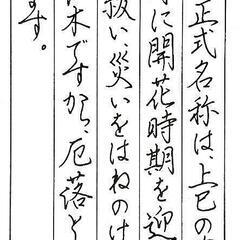 正式名称は、上巳の
に開花時期を迎
い、災いをはねのけ
木ですから、厄落と
す。